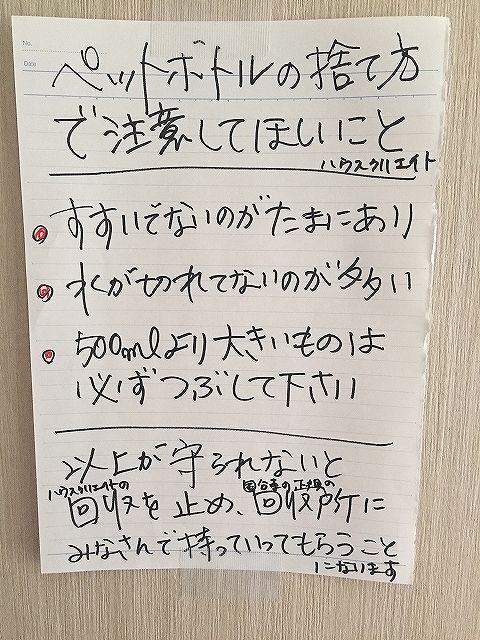 No.
Date
ペットボトルの捨て方
で注意してほしいこと
ハウスクリエイト
すすいでないのがたまにあり
水が切れてないのが多い
500mlより大きいものは
必ずつぶして下さい
以上が守られないと
ハウスクリエイトの
回収を止め、国分寺の正規の回収所に
みなさんで持っていってもらうこと
になります